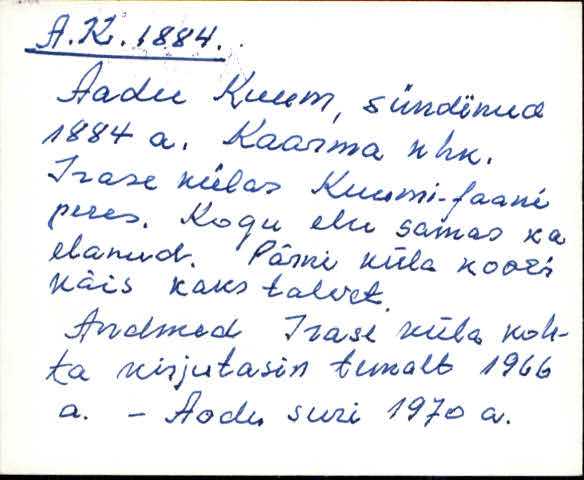 A.K. 1884.
Aadu Kuum, sündinud
1884 a. Kaarma khk.
Irase külas Kuumi-Jaani
peres. Kogu elu samas ka
elanud. Pärni küla koolis
käis kaks talvet.
Andmed Irase küla koh-
ta kirjutasin temalt 1966
a. – Aadu suri 1970 a.